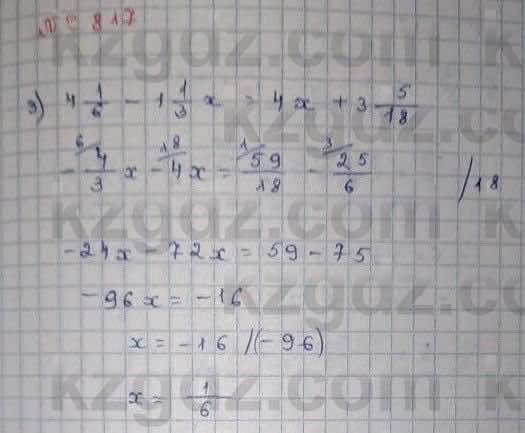 № 817
3) 4 1/6 - 1 1/3 x = 4x + 3 5/18
- 4/3 x - 4x = 59/18 - 25/6 /18
6 18 1 3
-24x - 72x = 59 - 75
-96x = -16
x = -16 /(-96)
x = 1/6
kzgdz.com